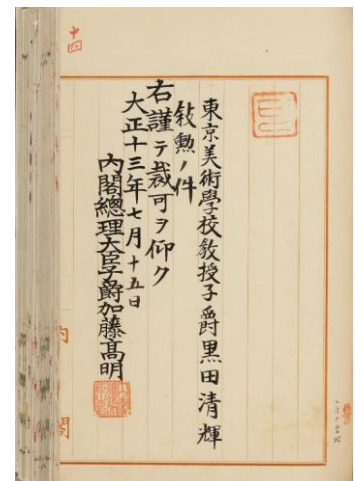 東京美術學校教授子爵黒田清輝
敍勲ノ件
右謹テ裁可ヲ仰ク
大正十三年七月十五日
内閣總理大臣子爵加藤高明
十四
内閣